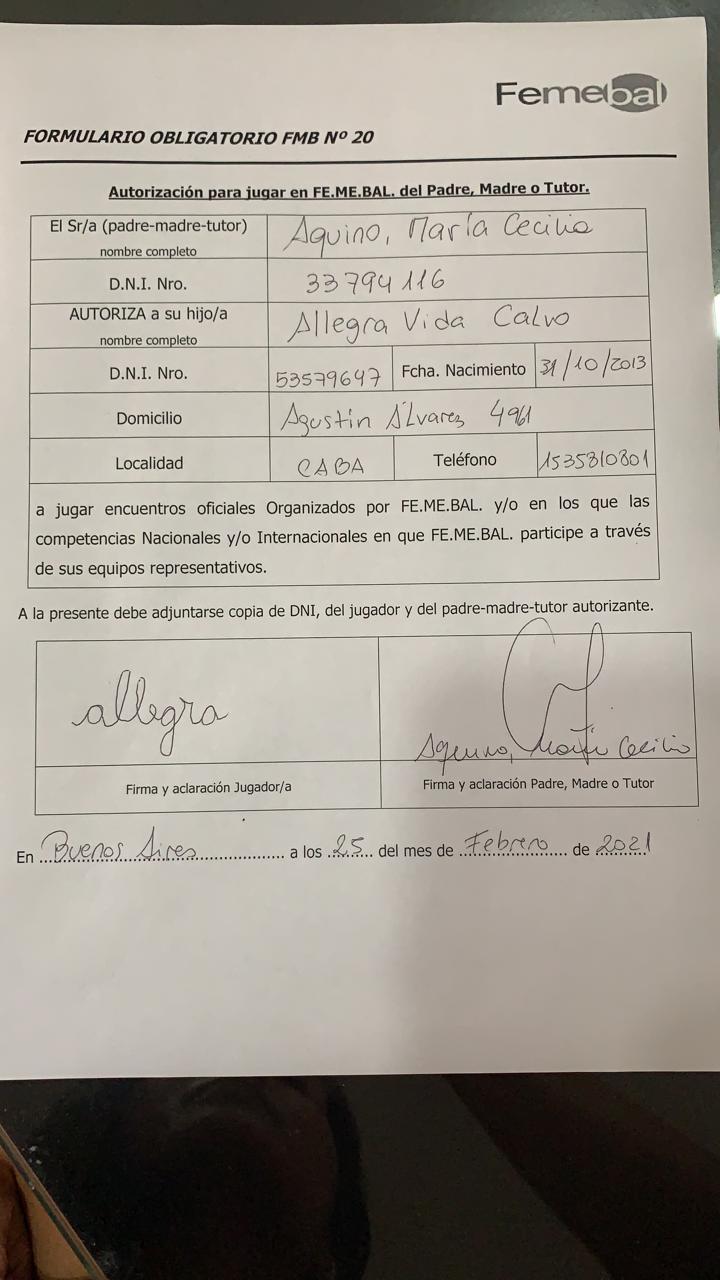 Femebal
FORMULARIO OBLIGATORIO FMB Nº 20
Autorización para jugar en FE.ME.BAL. del Padre, Madre o Tutor.
El Sr/a (padre-madre-tutor) Aquino, María Cecilia
nombre completo
D.N.I. Nro. 33794116
AUTORIZA a su hijo/a Allegra Vida Calvo
nombre completo
D.N.I. Nro. 53579647 Fcha. Nacimiento 31/10/2013
Domicilio Agustín Álvarez 4961
Localidad CABA Teléfono 1535810801
a jugar encuentros oficiales Organizados por FE.ME.BAL. y/o en los que las
competencias Nacionales y/o Internacionales en que FE.ME.BAL. participe a través
de sus equipos representativos.
A la presente debe adjuntarse copia de DNI, del jugador y del padre-madre-tutor autorizante.
allegra Aquino, María Cecilia
Firma y aclaración Jugador/a Firma y aclaración Padre, Madre o Tutor
En Buenos Aires a los 25 del mes de Febrero de 2021